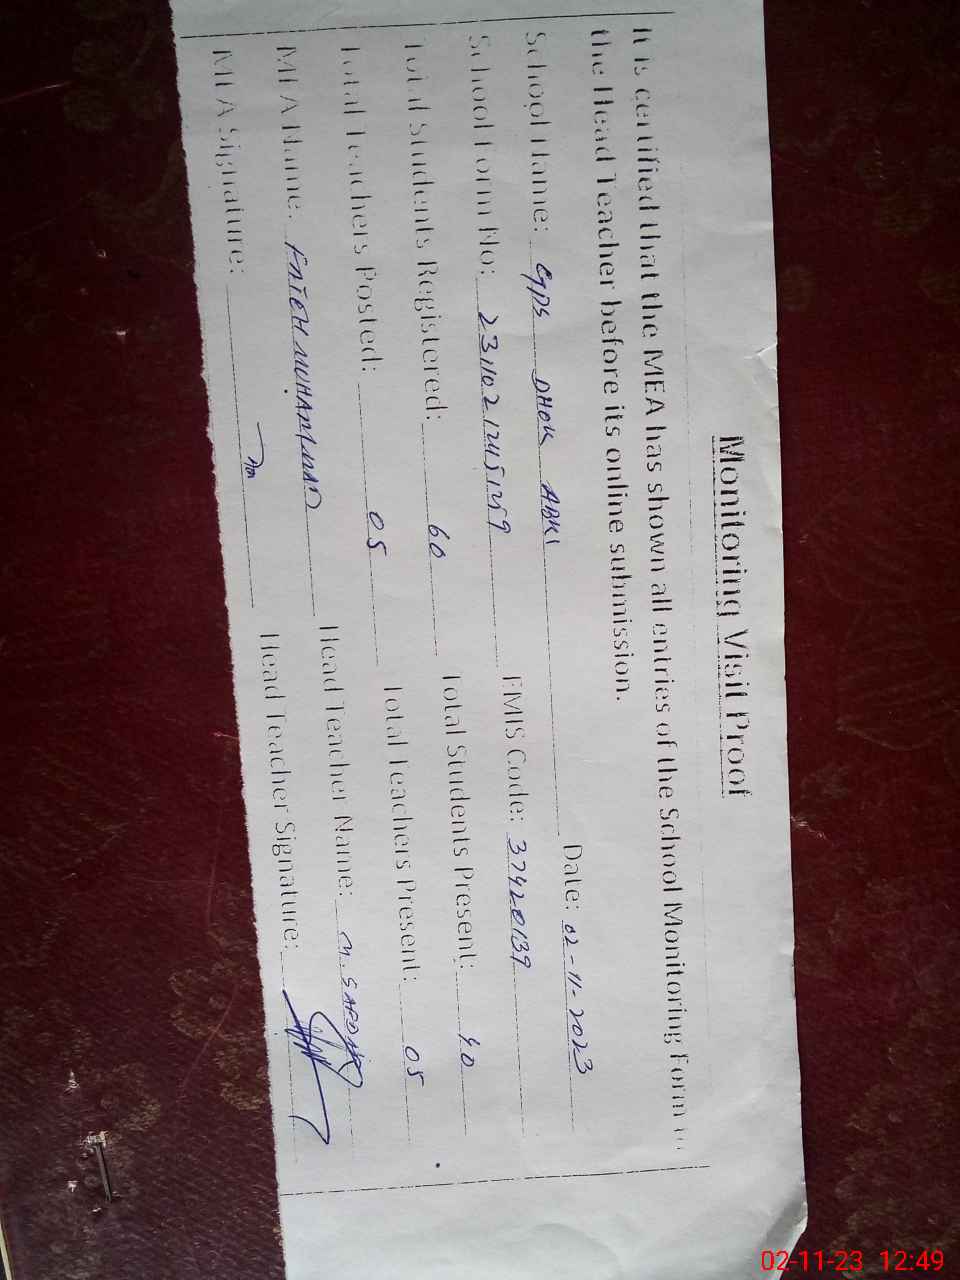 Monitoring Visit Proof
It is certified that the MEA has shown all entries of the School Monitoring Form to
the Head Teacher before its online submission.
School Name: GPS DHOK ABKI Date: 02-11-2023
School Form No: EMIS Code: 37420139
Total Students Registered: 60 Total Students Present: 40
Total Teachers Posted: 05 Total Teachers Present: 05
MEA Name: FATEH MUHAMMAD Head Teacher Name: M.
MEA Signature: Head Teacher Signature:
02-11-23 12:49